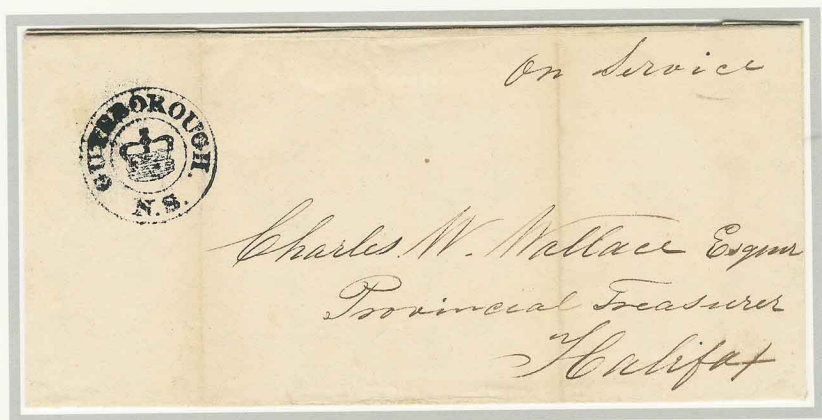 On Service
GUYSBOROUGH.
N.S.
Charles W. Wallace Esquir
Provincial Treasurer
Halifax